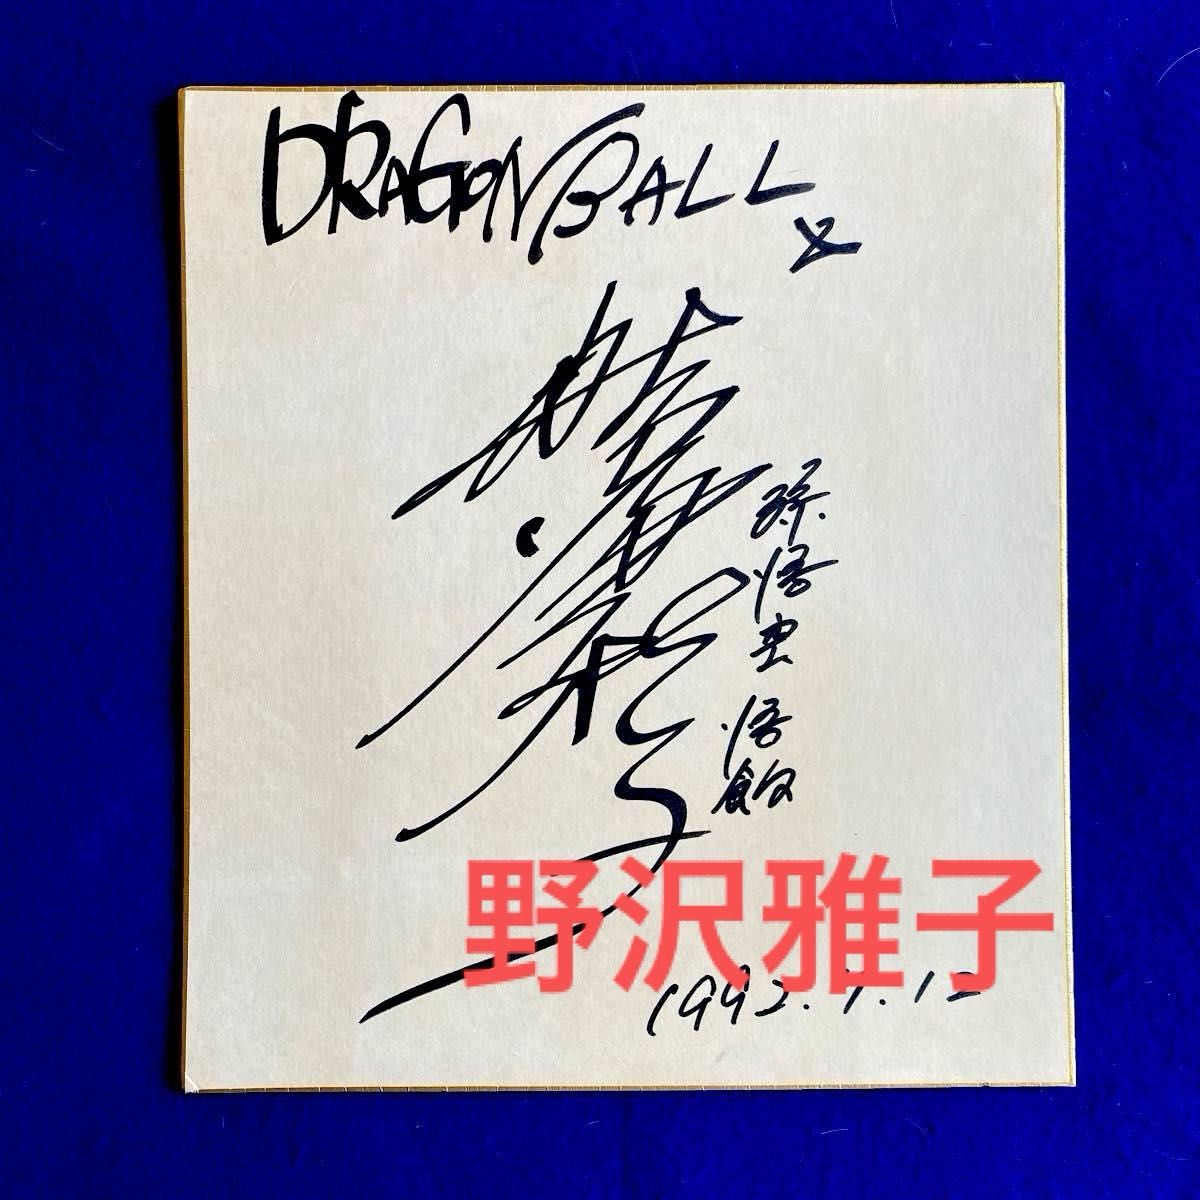 DRAGON BALL Z
孫悟空
悟飯
野沢雅子
1992.7.12